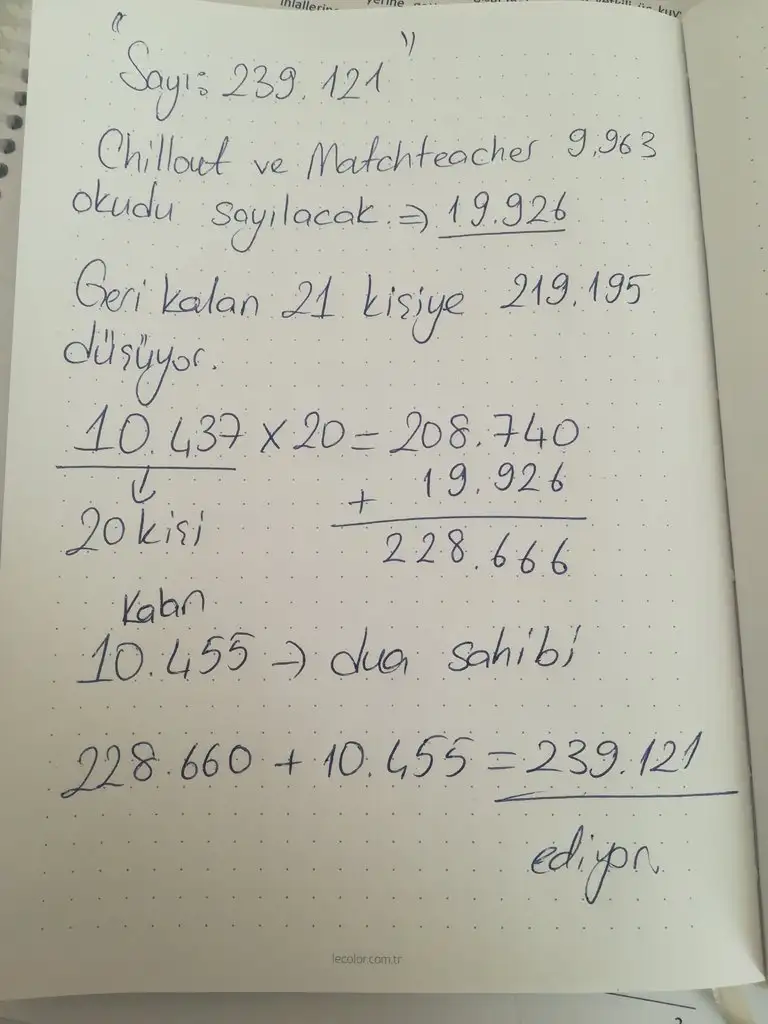 ihlallerin yerine
" Sayı: 239.121 "
Chillout ve Matchteacher 9.963
okudu sayılacak. ⇒ 19.926
Geri kalan 21 kişiye 219.195
düşüyor.
10.437 x 20 = 208.740
+ 19.926
20 kişi
228.666
Kalan
10.455 → dua sahibi
228.660 + 10.455 = 239.121
ediyor.
lecolor.com.tr